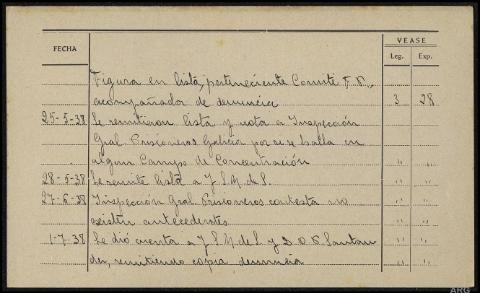 VEASE
FECHA Leg. Exp.
Figura en lista, perteneciente Comité F. P.,
acompañador de denuncia 3 28
25-5-38 Se remitieron lista y nota a Inspección
Gral. Prisioneros Galicia por si se halla en
algún Campo de Concentración " "
28-5-38 Se remite lista a J S.M. de S. " "
27-6-38 Inspección Gral. Prisioneros contesta no
existen antecedentes " "
1-7-38 Se dió cuenta a J S.M. de S y D.O.P. Santan
der, remitiendo copia denuncia " "
ARG